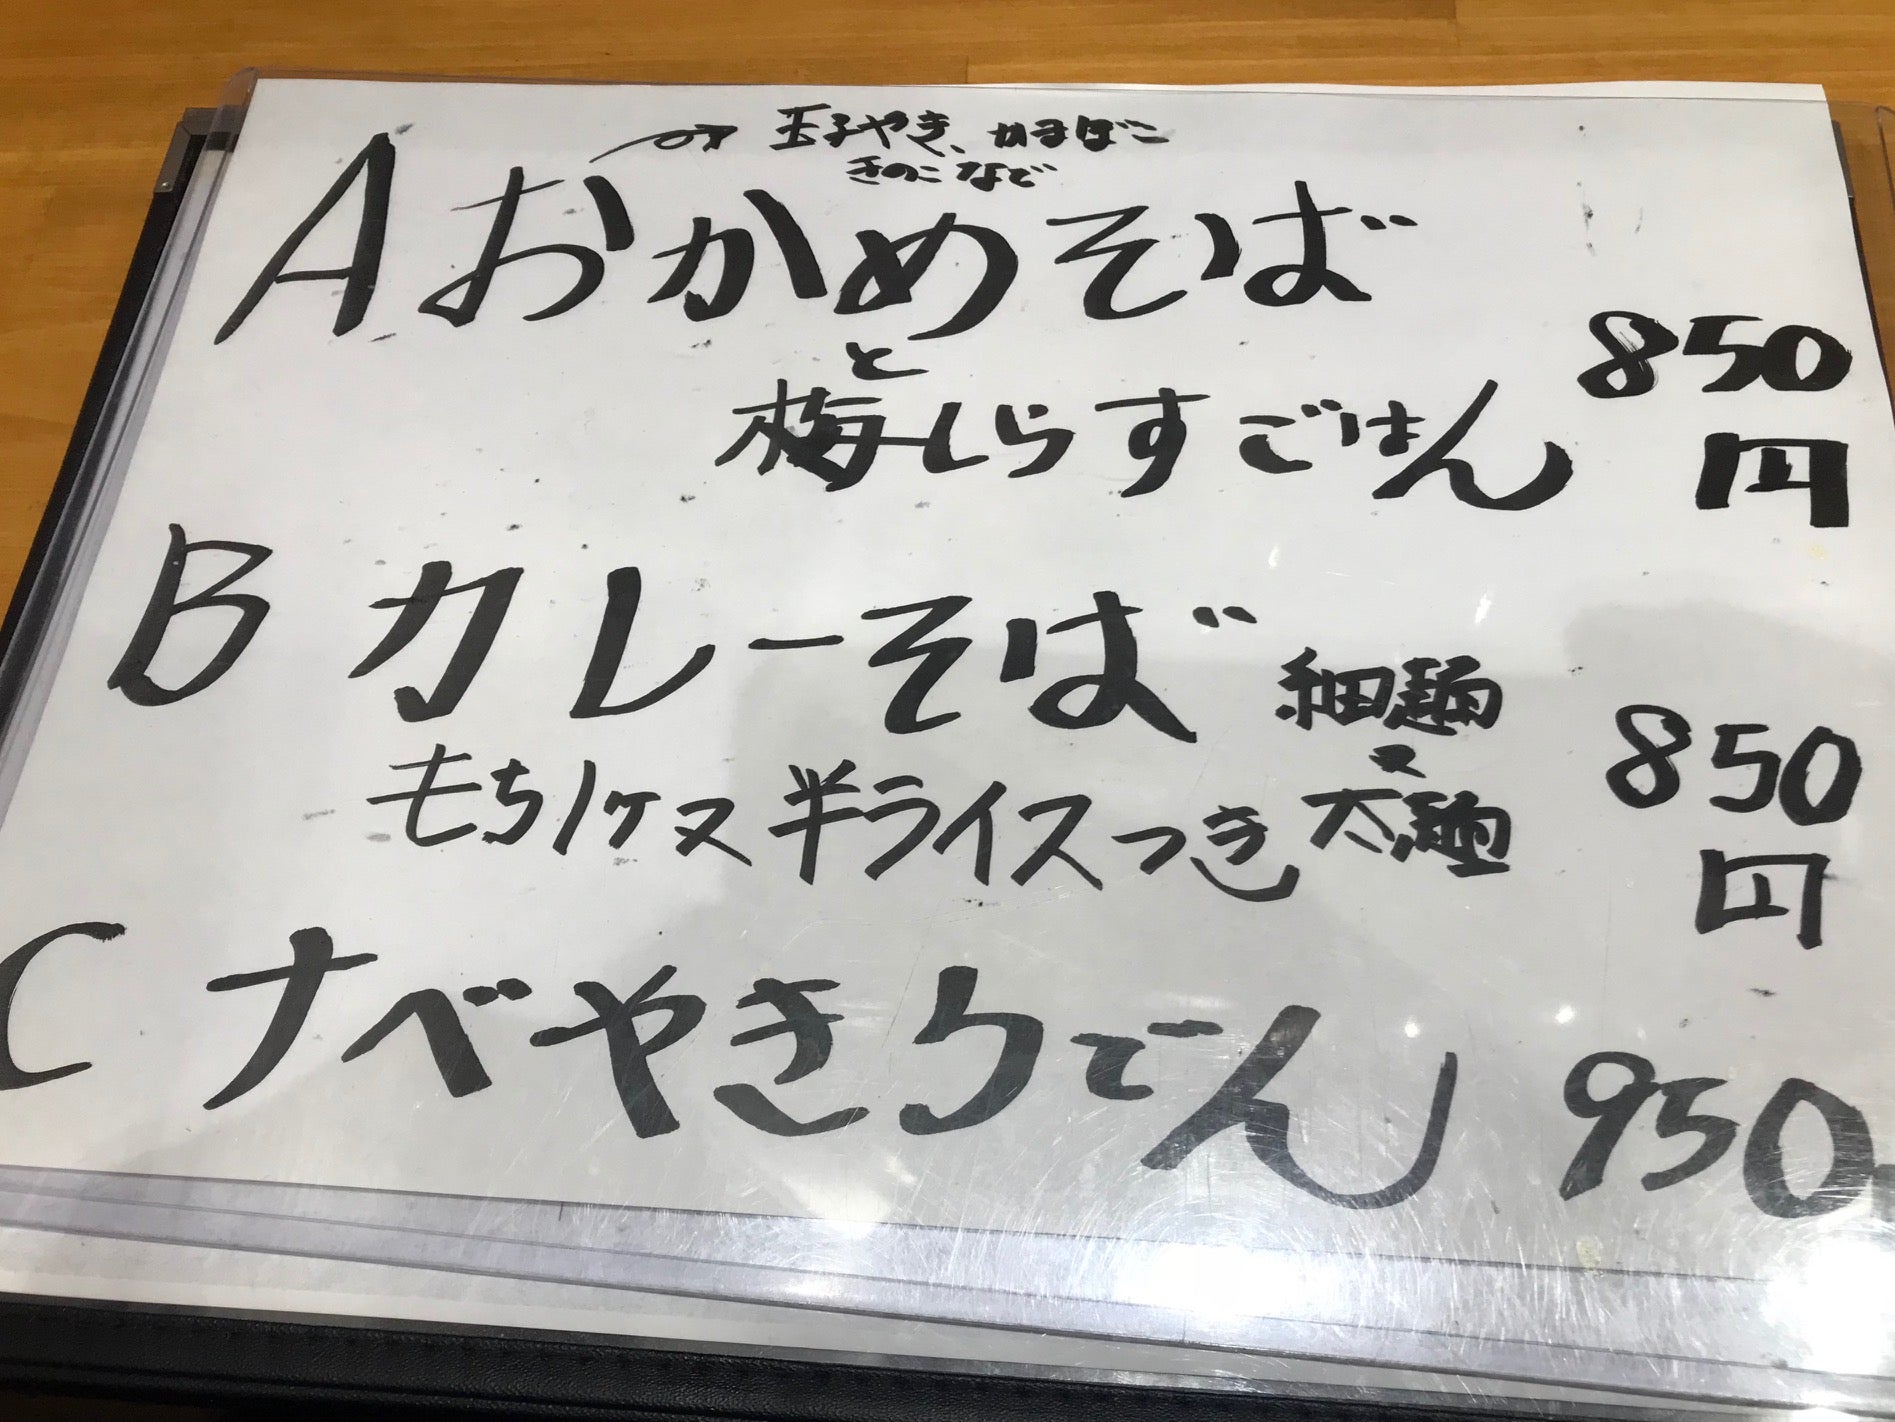 玉子やき、かまぼこ
きのこなど
A おかめそば
と
梅しらすごはん 850円
B カレーそば 細麺
又
もち1ケ又半ライスつき 太麺 850円
C ナベやきうどん 950